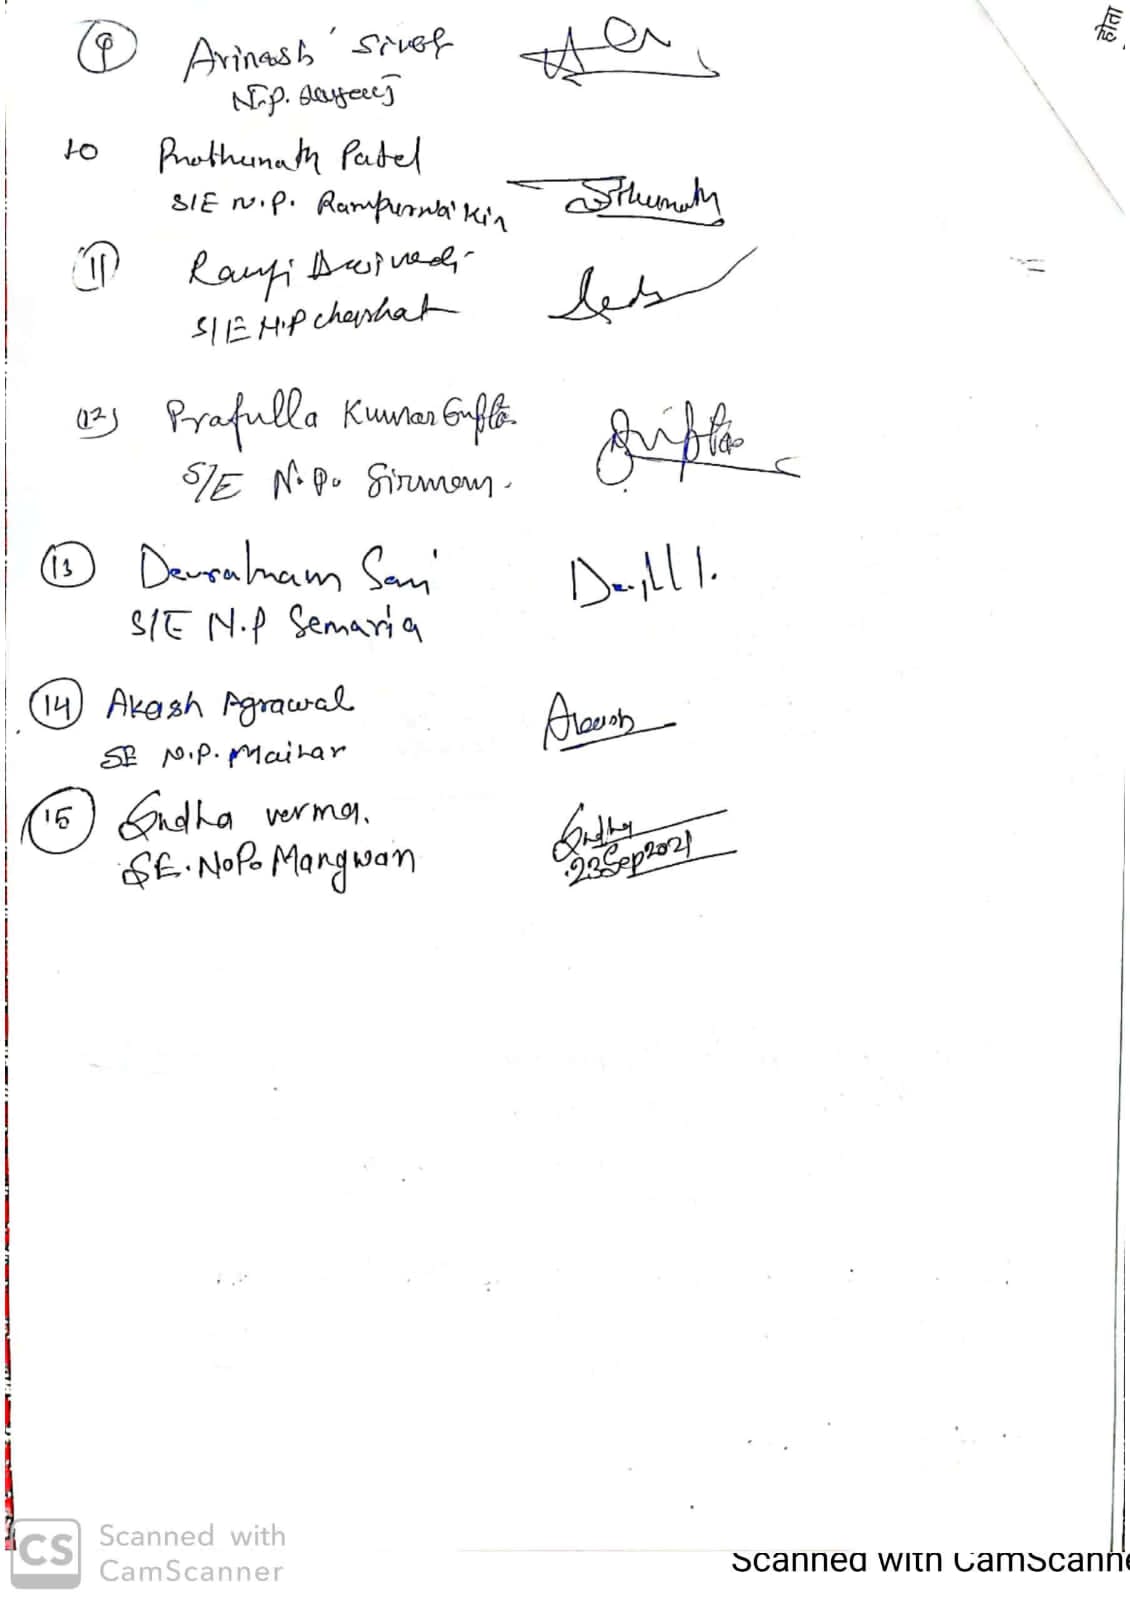 9 Avinash
N.P.
10 Prathunath Patel
S/E N.P. Rampurwa' Kin
11 Ranji Dwivedi
S/E N.P
12) Prafulla Kumar Gupta
S/E N.P. Sirmour.
Gupta
13 Devratnam Soni
S/E N.P Semaria
14 Akash Agrawal
SE N.P. Maihar
Akash
15 Sudha verma.
SE. N.P. Mangwan
Sudha
23 Sep 2021
CS Scanned with
CamScanner
Scanned with CamScanne